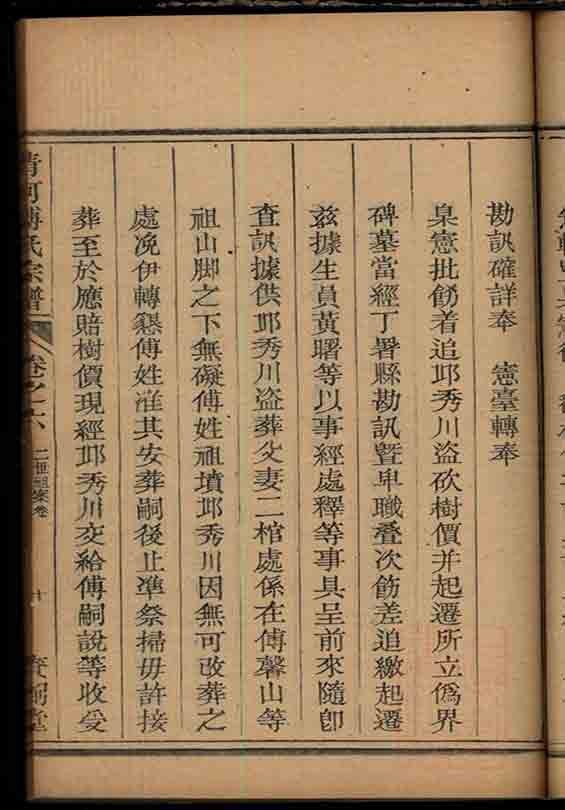 勘訊確詳奉　憲臺轉奉
臬憲批飭着追邛秀川盜砍樹價并起遷所立僞界
碑墓當經丁署縣勘訊暨卑職叠次飭差追繳起遷
兹據生員黃曙等以事經處釋等事具呈前來隨卽
查訊據供邛秀川盜葬父妻二棺處係在傅馨山等
祖山脚之下無礙傅姓祖墳邛秀川因無可改葬之
處凂伊轉懇傅姓准其安葬嗣後止準祭掃毋許接
葬至於應賠樹價現經邛秀川交給傅嗣說等收受
清河傅氏宗譜
卷之六
二世祖案卷
堂